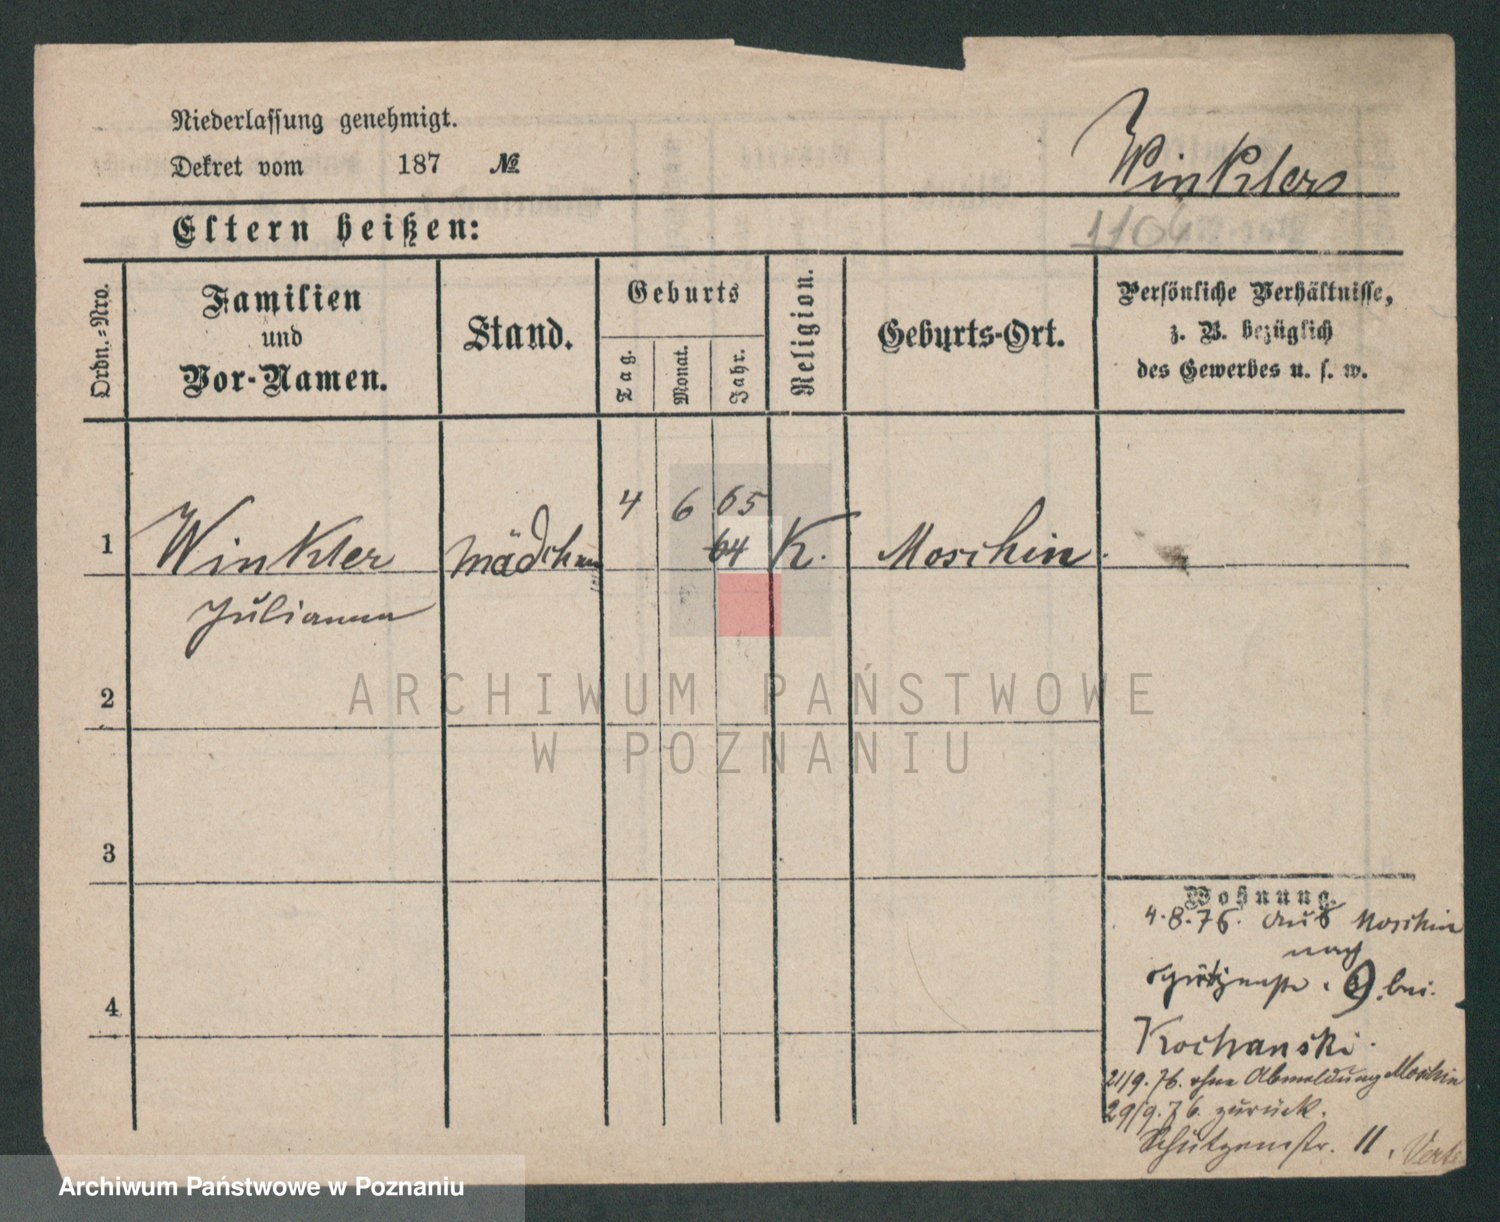 Niederlassung genehmigt.
Dekret vom 187 №
Winkler
1104
Eltern heißen:
Ordn.-Nro.
Familien
und
Vor-Namen.
Stand.
Geburts
Tag.
Monat.
Jahr.
Religion.
Geburts-Ort.
Persönliche Verhältnisse,
z. B. bezüglich
des Gewerbes u. s. w.
4 6 65
1 Winkler Mädchen 64 K. Moschin.
Julianna
ARCHIWUM PAŃSTWOWE
W POZNANIU
2
3
4
Wohnung.
4.8.76. aus Moschin
nach
Schützenstr. 9. bei
Kochanski.
21/9.76. ohne Abmeldung Moschin
29/9.76. zurück.
Schützenstr. 11.
Archiwum Państwowe w Poznaniu